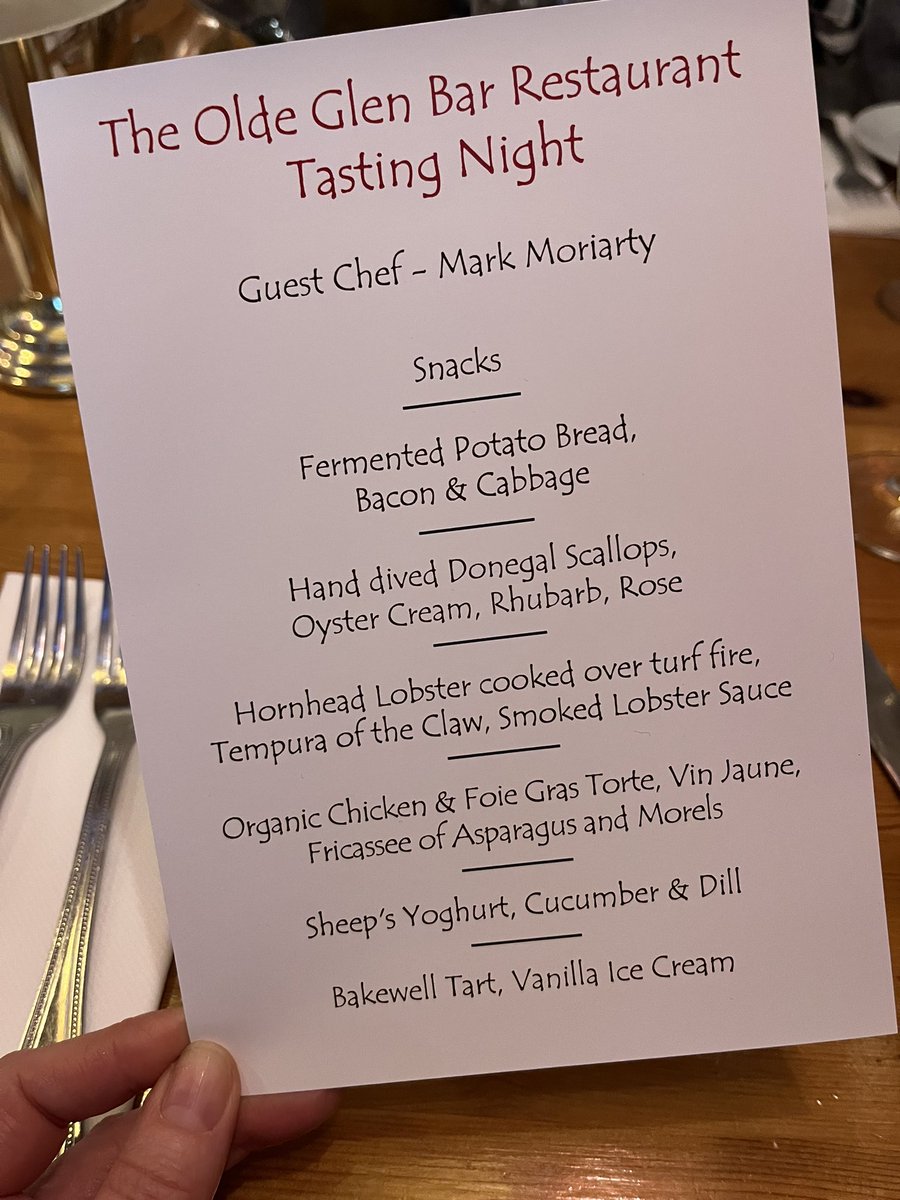 The Olde Glen Bar Restaurant
Tasting Night
Guest Chef - Mark Moriarty
Snacks
Fermented Potato Bread,
Bacon & Cabbage
Hand dived Donegal Scallops,
Oyster Cream, Rhubarb, Rose
Hornhead Lobster cooked over turf fire,
Tempura of the Claw, Smoked Lobster Sauce
Organic Chicken & Foie Gras Torte, Vin Jaune,
Fricassee of Asparagus and Morels
Sheep's Yoghurt, Cucumber & Dill
Bakewell Tart, Vanilla Ice Cream